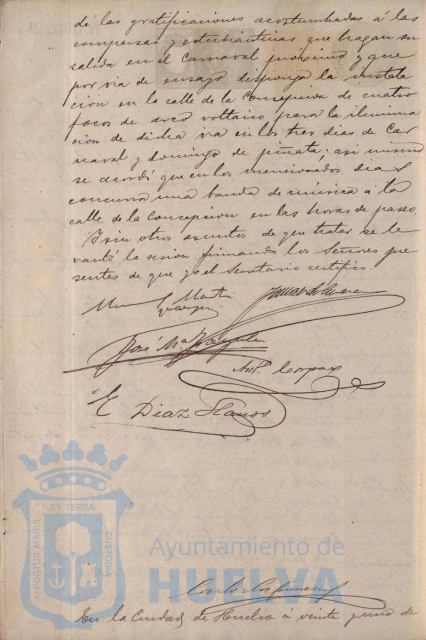 de las gratificaciones acostumbradas á las
comparsas y estudiantinas que hagan su
salida en el Carnaval proximo y que
por via de ensayo disponga la instala
ción en la calle de la Concepcion de cuatro
focos de arco voltaico para la ilumina
ción de dicha via en los tres dias de Car
naval y domingo de piñata; asi mismo
se acordó que en los mencionados dias
concurra una banda de música á la
calle de la Concepcion en las horas de paseo.
Y sin otros asuntos de que tratar se le
vantó la sesion firmando los Señores pre
sentes de que yo el Secretario certifico.
José Mª
E Diaz
PORTUS MARIS ET TERRÆ CUSTODIA
Ayuntamiento de
HUELVA
En la Ciudad de Huelva á veinte y uno de